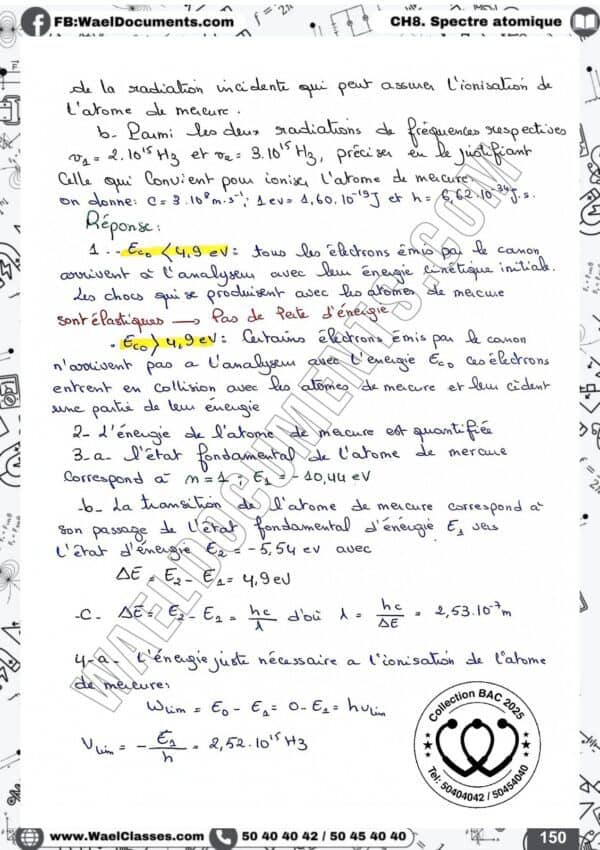 FB:WaelDocuments.com
CH8. Spectre atomique
de la radiation incidente qui peut assurer l'ionisation de
l'atome de mercure.
b- Parmi les deux radiations de fréquences respectives
ν1 = 2.10^15 Hz et ν2 = 3.10^15 Hz, préciser en le justifiant
Celle qui Convient pour ioniser l'atome de mercure.
on donne: C = 3.10^8 m.s^-1; 1 ev = 1,60.10^-19 J et h = 6,62.10^-34 j.s.
Réponse:
1. - Ec0 < 4,9 eV: tous les électrons émis par le canon
arrivent à l'analyseur avec leur énergie cinétique initiale.
Les chocs qui se produisent avec les atomes de mercure
sont élastiques → Pas de Perte d'énergie
. Ec0 > 4,9 eV: Certains électrons émis par le canon
n'arrivent pas a l'analyseur avec l'énergie Ec0 ces électrons
entrent en collision avec les atomes de mercure et leur cèdent
une partie de leur énergie
2- L'énergie de l'atome de mercure est quantifiée
3-a- l'état fondamental de l'atome de mercure
Correspond à n = 1; E1 = -10,44 eV
-b- La transition de l'atome de mercure correspond à
son passage de l'état fondamental d'énergie E1 vers
l'état d'énergie E2 = -5,54 ev avec
ΔE = E2 - E1 = 4,9 eV
-C- ΔE = E2 - E1 = hc/λ d'où λ = hc/ΔE = 2,53.10^-7 m
4-a- L'énergie juste nécessaire a l'ionisation de l'atome
de mercure:
Wlim = E0 - E1 = 0 - E1 = hνlim
νlim = - E1/h = 2,52.10^15 Hz
WAELDOCUMENTS.COM
Collection BAC 2025
Tel: 50404042 / 50454040
www.WaelClasses.com
50 40 40 42 / 50 45 40 40
150